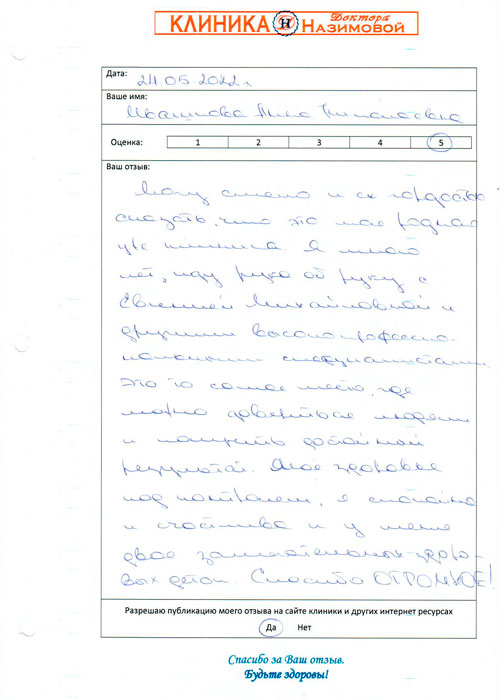 КЛИНИКА Н Доктора НАЗИМОВОЙ
Дата: 24.05.2022 г
Ваше имя:
Ивашкова Анна Николаевна
Оценка: 1 2 3 4 5
Ваш отзыв:
Могу смело и с гордостью
сказать, что это моя родная
уже клиника. Я много
лет, иду рука об руку с
Евгенией Михайловной и
другими высокопрофессио-
нальными специалистами.
Это то самое место, где
можно довериться людям
и получить достойный
результат. Мое здоровье
под контролем, я спокойна
и счастлива и у меня
двое замечательных здоро-
вых детей. Спасибо ОГРОМНОЕ!
Разрешаю публикацию моего отзыва на сайте клиники и других интернет ресурсах
Да Нет
Спасибо за Ваш отзыв.
Будьте здоровы!